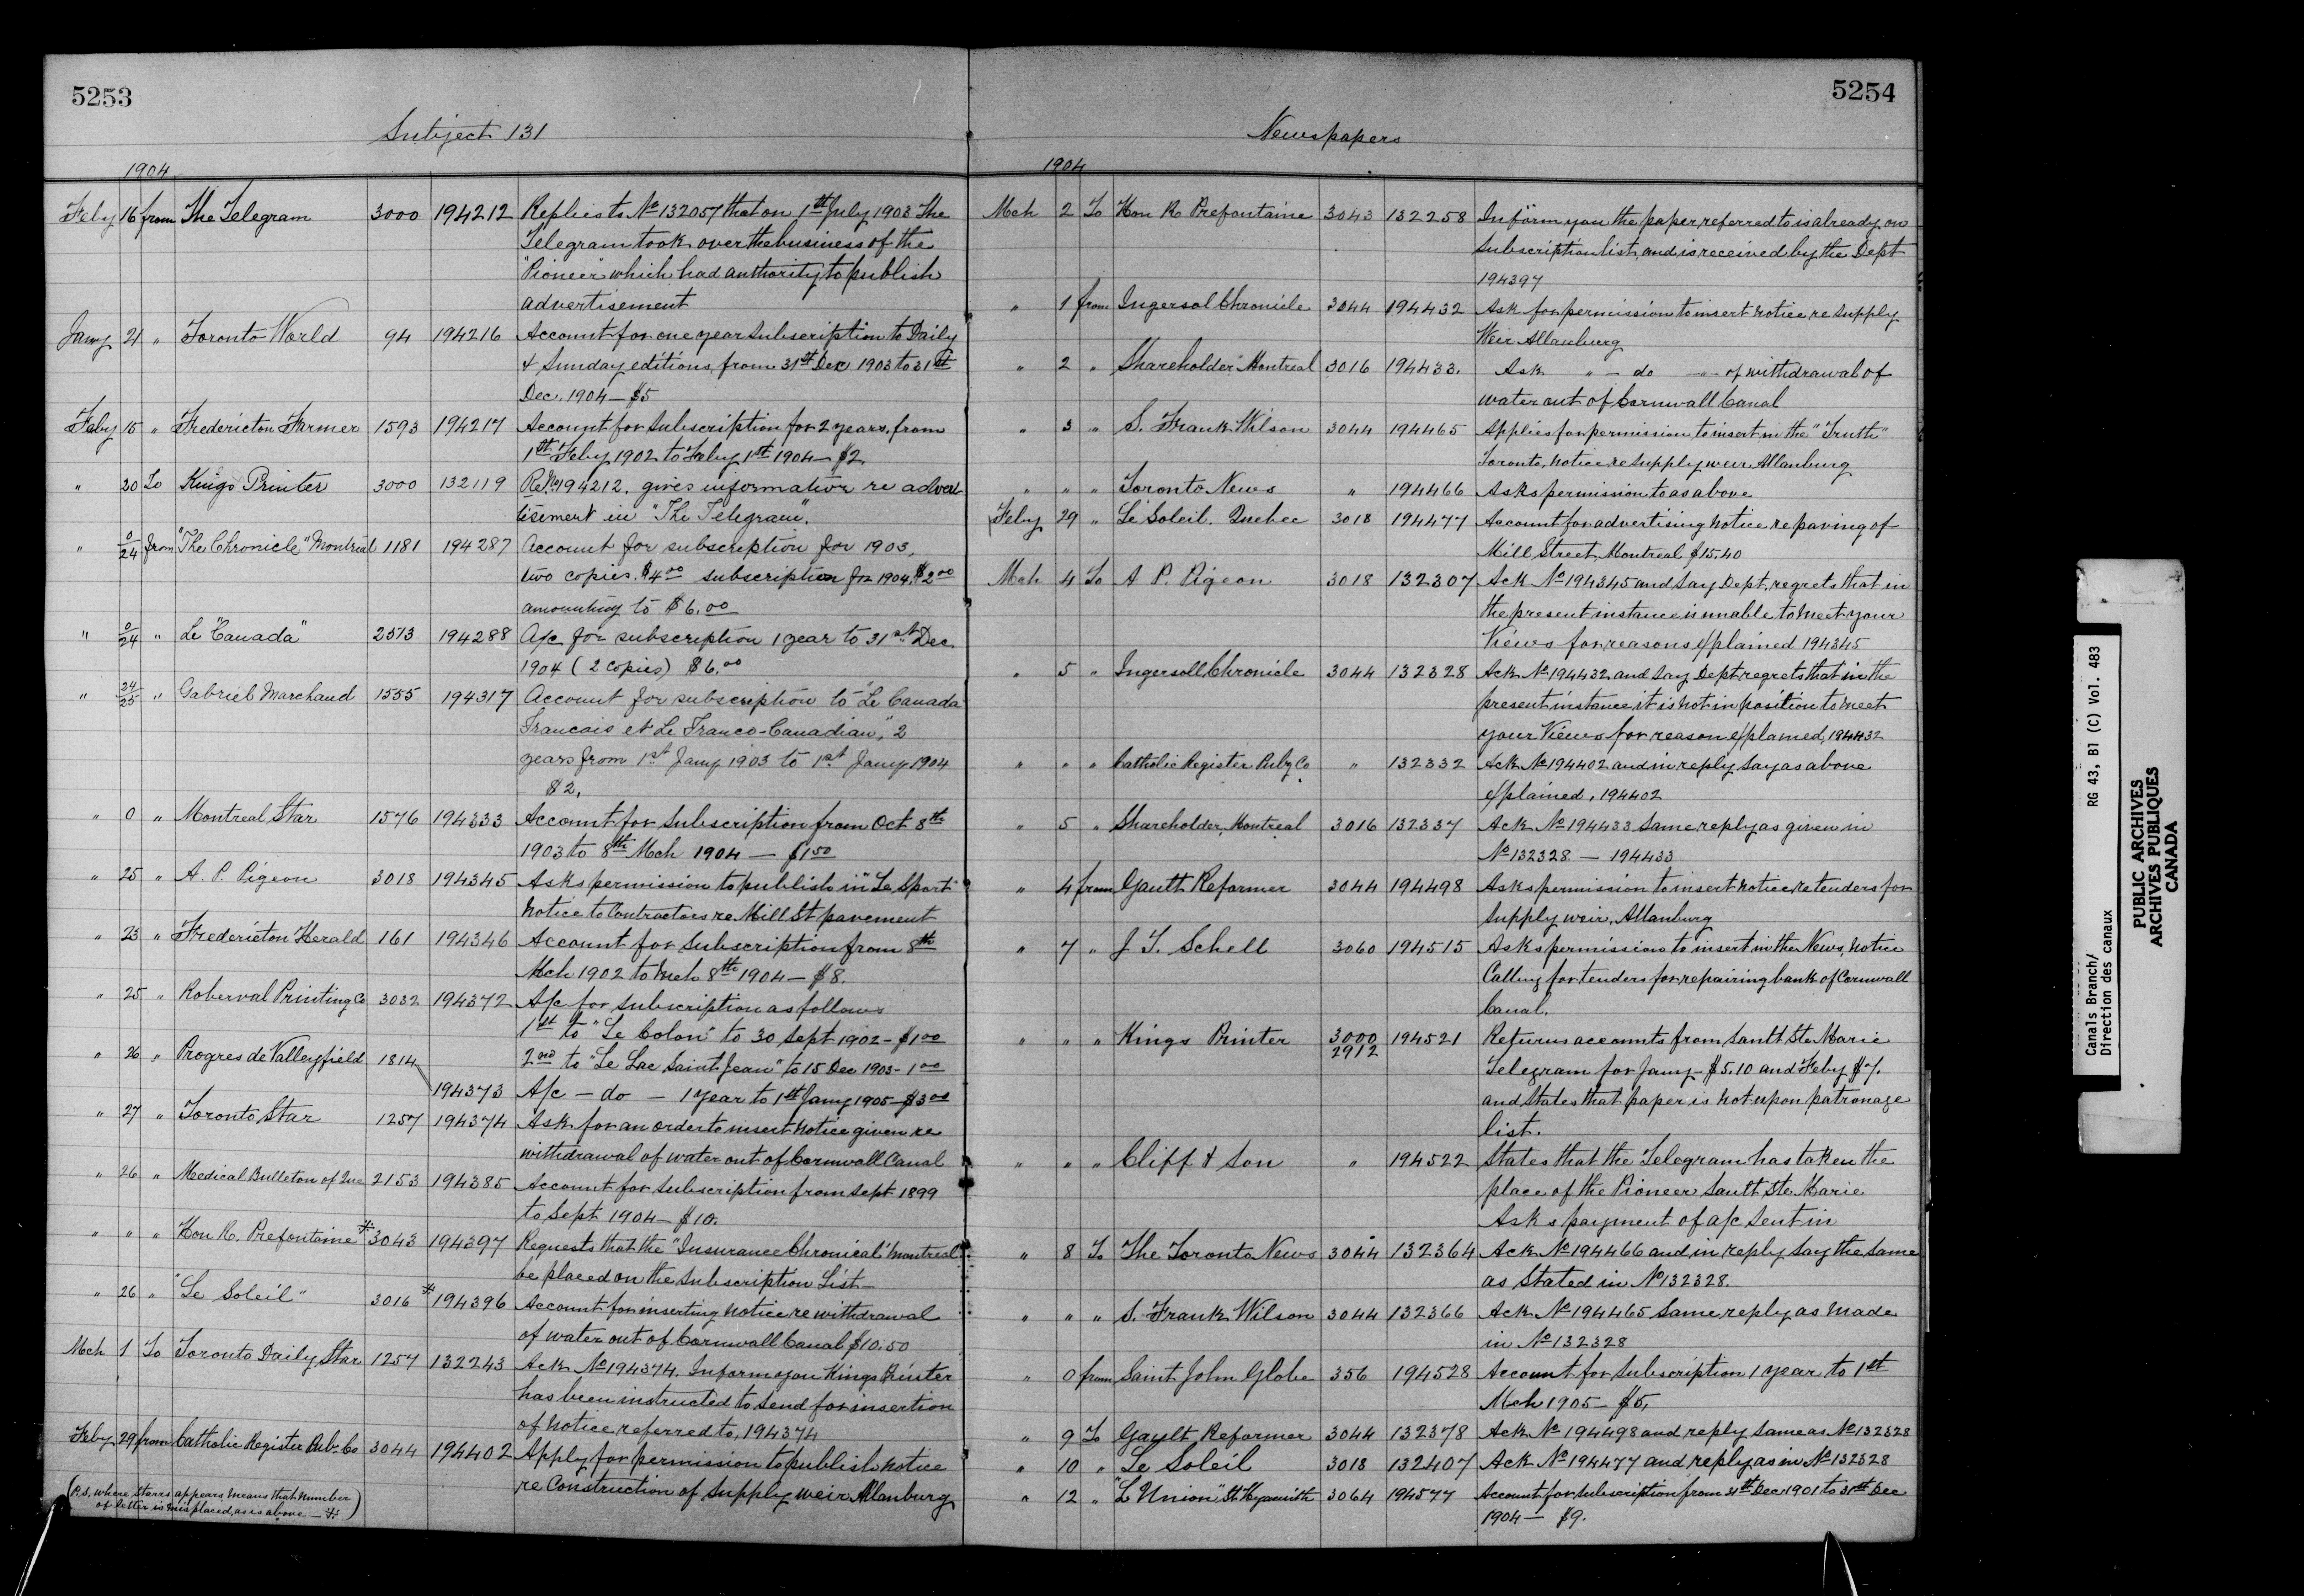 5253
Subject 131
1904
Feby 16 from The Telegram 3000 194212 Replies to No 132057 that on 1st July 1903 The
Telegram took over the business of the
"Pioneer" which had authority to publish
advertisement
Jany 21 " Toronto World 94 194216 Account for one year subscription to Daily
& Sunday editions, from 31st Dec 1903 to 31st
Dec. 1904 — $5
Feby 15 " Fredericton Farmer 1593 194217 Account for subscription for 2 years, from
1st Feby 1902 to Feby 1st 1904 — $2
" 20 To Kings Printer 3000 132119 Re No 194212. gives information re adver
tisement in "The Telegram".
" 0/24 from "The Chronicle" Montreal 1181 194287 Account for subscription for 1903,
two copies. $4.00 subscription for 1904, $2.00
amounting to $6.00
" 0/24 " Le "Canada" 2573 194288 A/c for subscription 1 year to 31st Dec
1904 (2 copies) $6.00
" 24/25 " Gabriel Marchand 1555 194317 Account for subscription to "Le Canada
Francais et Le Franco-Canadian," 2
years from 1st Jany 1903 to 1st Jany 1904
$2.
" 0 " Montreal Star 1576 194333 Account for subscription from Oct 8th
1903 to 8th Mch 1904 — $1.50
" 25 " A. P. Pigeon 3018 194345 Asks permission to publish in "Le Sport"
Notice to Contractors re Mill St pavement
" 23 " Fredericton Herald 161 194346 Account for subscription from 8th
Mch 1902 to Mch 8th 1904 — $8.
" 25 " Roberval Printing Co 3032 194372 A/c for subscription as follows
1st to "Le Colon" to 30 Sept 1902 - $1.00
" 26 " Progres de Valleyfield 1814 2nd to "Le Lac Saint Jean" to 15 Dec 1903 - 1.00
194373 A/c — do — 1 year to 1st Jany 1905 — $3.00
" 27 " Toronto Star 1257 194374 Ask for an order to insert notice given re
withdrawal of water out of Cornwall Canal
" 26 " Medical Bulleton of Que 2153 194385 Account for subscription from Sept 1899
to Sept 1904 — $10.
" " " Hon R. Prefontaine * 3043 194397 Requests that the "Insurance Chronical" Montreal
be placed on the subscription List —
" 26 " "Le Soleil" 3016 * 194396 Account for inserting notice re withdrawal
of water out of Cornwall Canal $10.50
Mch 1 To Toronto Daily Star 1257 132243 Ack No 194374. Inform you Kings Printer
has been instructed to send for insertion
of notice referred to, 194374
Feby 29 from Catholic Register Pub. Co 3044 194402 Apply for permission to publish notice
re Construction of Supply weir Allanburg
(P.S. where starrs appears means that number
of letter is misplaced, as is above — *)
5254
Newspapers
1904
Mch 2 To Hon R Prefontaine 3043 132258 Inform you the paper referred to is already on
subscription list, and is received by the Dept
194397
" 1 from Ingersol Chronicle 3044 194432 Ask for permission to insert notice re supply
Weir Allanburg
" 2 " Shareholder" Montreal 3016 194433. Ask " — do — of withdrawal of
water out of Cornwall Canal
" 3 " S. Frank Wilson 3044 194465 Applies for permission to insert in the "Truth"
Toronto, notice re supply weir Allanburg
" " " Toronto News " 194466 Asks permission to as above
Feby 29 " Le Soleil. Quebec 3018 194477 Account for advertising notice re paving of
Mill Street, Montreal $15.40
Mch 4 To A P. Pigeon 3018 132307 Ack No 194345 and say Dept, regrets that in
the present instance is unable to meet your
Views for reasons explained 194345
" 5 " Ingersoll Chronicle 3044 132328 Ack No 194432 and say Dept regrets that in the
present instance it is not in position to meet
your Views for reason explained, 194432
" " " Catholic Register Pub Co " 132332 Ack No 194402 and in reply say as above
explained, 194402
" 5 " Shareholder, Montreal 3016 132337 Ack No 194433 same reply as given in
No 132328 — 194433
" 4 from Gault Reformer 3044 194498 Asks permission to insert notice re tenders for
supply weir, Allanburg
" 7 " J T. Schell 3060 194515 Asks permission to insert in the News, notice
Calling for tenders for repairing bank of Cornwall
Canal.
" " " Kings Printer 3000 194521 Returns accounts from Sault Ste Marie
2912
Telegram for Jany — $5.10 and Feby $7.
and states that paper is not upon patronage
list.
" " " Cliff & Son " 194522 States that the Telegram has taken the
place of the Pioneer Sault Ste Marie
Asks payment of a/c sent in
" 8 To The Toronto News 3044 132364 Ack No 194466 and in reply say the same
as stated in No 132328.
" " " S. Frank Wilson 3044 132366 Ack No 194465 same reply as made
in No 132328
" 0 from Saint John Globe 356 194528 Account for subscription 1 year to 1st
Mch 1905 — $5,
" 9 To Gault Reformer 3044 132378 Ack No 194498 and reply same as No 132328
" 10 " Le Soleil 3018 132407 Ack No 194477 and reply as in No 132328
" 12 " "L'Union" St. Hyacinth 3064 194577 Account for subscription from 31st Dec 1901 to 31st Dec
1904 — $9.
Canals Branch/ RG 43, B1 (C) Vol. 483
Direction des canaux
PUBLIC ARCHIVES
ARCHIVES PUBLIQUES
CANADA